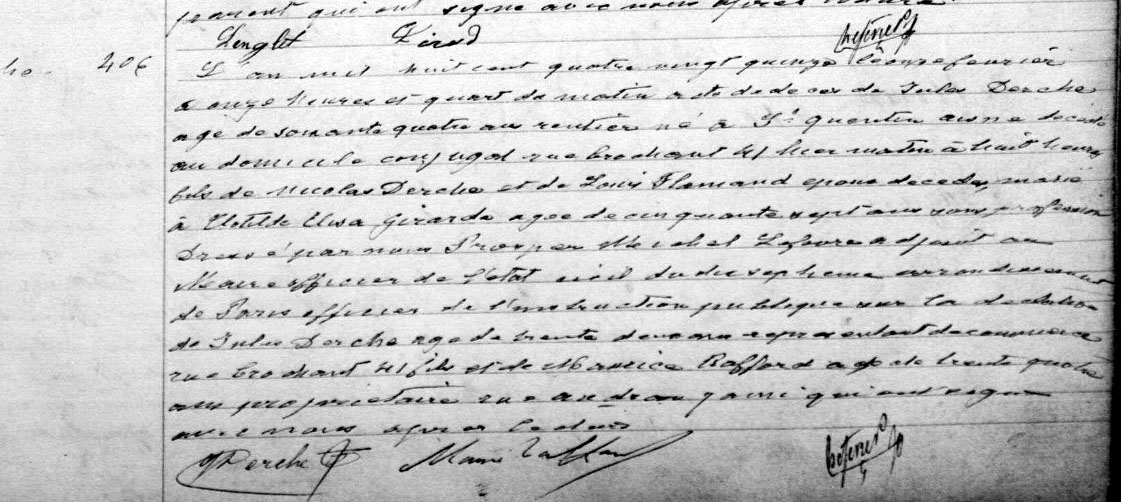 parent qui ont signé avec nous après lecture.
Lenglet
406 L'an mil huit cent quatre vingt quinze le onze fevrier
a onze heures et quart du matin acte de deces de Jules Derche
age de soixante quatre ans rentier né à St quentin aisne decedé
au domicile conjugal rue brochant 41 hier matin à huit heures
fils de Nicolas Derche et de Louis Flamand epoux decedes, marié
à Clotilde Elisa Girarde agee de cinquante sept ans sans profession
Dressé par nous Prosper Michel Lefevre adjoint au
Maire officier de l'etat civil du dix septieme arrondissement
de Paris officier de l'instruction publique sur la declaration
de Jules Derche age de trente deux ans representant de commerce
rue brochant 41 fils et de Maurice Rafford age de trente quatre
ans propriétaire rue ami qui ont signé
avec nous apres lecture
Derche